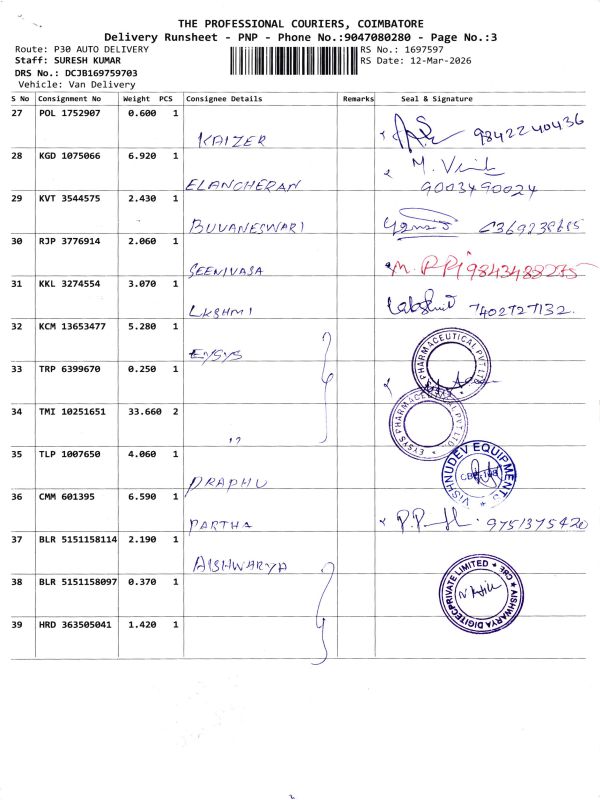 THE PROFESSIONAL COURIERS, COIMBATORE
Delivery Runsheet - PNP - Phone No.:9047080280 - Page No.:3
Route: P30 AUTO DELIVERY
RS No.: 1697597
Staff: SURESH KUMAR
RS Date: 12-Mar-2026
DRS No.: DCJB169759703
Vehicle: Van Delivery
S No Consignment No Weight PCS Consignee Details Remarks Seal & Signature
27 POL 1752907 0.600 1
KAIZER 9842240436
28 KGD 1075066 6.920 1
ELANCHERAN 9003490024
29 KVT 3544575 2.430 1
BUVANESWARI
30 RJP 3776914 2.060 1
SEENIVASA 9843488275
31 KKL 3274554 3.070 1
LKSHMI Lakshmi 7402727132
32 KCM 13653477 5.280 1
EYSYS PHARMACEUTICAL PVT LTD
33 TRP 6399670 0.250 1
34 TMI 10251651 33.660 2
EYSYS PHARMACEUTICAL PVT LTD
"
35 TLP 1007650 4.060 1
PRAPHU VISHNUDEV EQUIPMENTS
36 CMM 601395 6.590 1
PARTHA 9751375420
37 BLR 5151158114 2.190 1
AISHWARYA
38 BLR 5151158097 0.370 1
AISHWARYA DIGITEC PRIVATE LIMITED ★ CBE ★
39 HRD 363505041 1.420 1